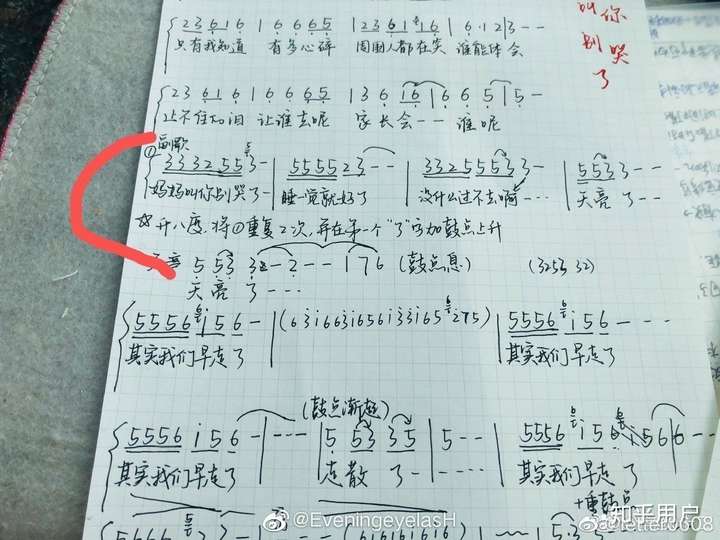 叫你别哭了
2 3 6 1 6 | 6 6 6 5 | 2 3 6 1 1 6 | 6 · 1 2 | 3 - -
只有我知道 有多心碎 周围人都在笑 谁能体会
2 3 6 1 6 1 6 6 6 5 | 3 6 1 6 | 6 6 5 | 5 -
止不住如泪 让谁去呢 家长会 - - 谁呢
① 副歌
3 3 3 2 5 5 3 - | 5 5 5 5 2 3 - - | 3 3 2 5 5 5 3 3 - | 5 5 3 3 - -
妈妈叫你别哭了 - 睡一觉就好了 没什么过不去啊 - - - 天亮了 - - -
升八度, 将①重复2次, 并在第一个"了"字加鼓点上升
5 5 3 3 - 2 - - - 1 7 6 (鼓点息) (3253 32)
天亮了 - - - -
5 5 5 6 i 5 6 - | (6 3 i 6 6 3 i 6 5 6 i 3 3 i 6 5 i 2 7 5) | 5 5 5 6 i 5 6 - - - -
其实我们早走了 其实我们早走了
(鼓点渐起)
5 5 5 6 i 5 6 - | - - - - | 5 5 3 3 5 | 5 - - - 5 5 5 6 i 5 6 i 5 6 | 6 - - -
其实我们早走了 走散了 - - - - - 其实我们早走了
+重鼓点
(6 i 6 i 6 i 6 i 6)
@EveningeyelasH
知乎用户